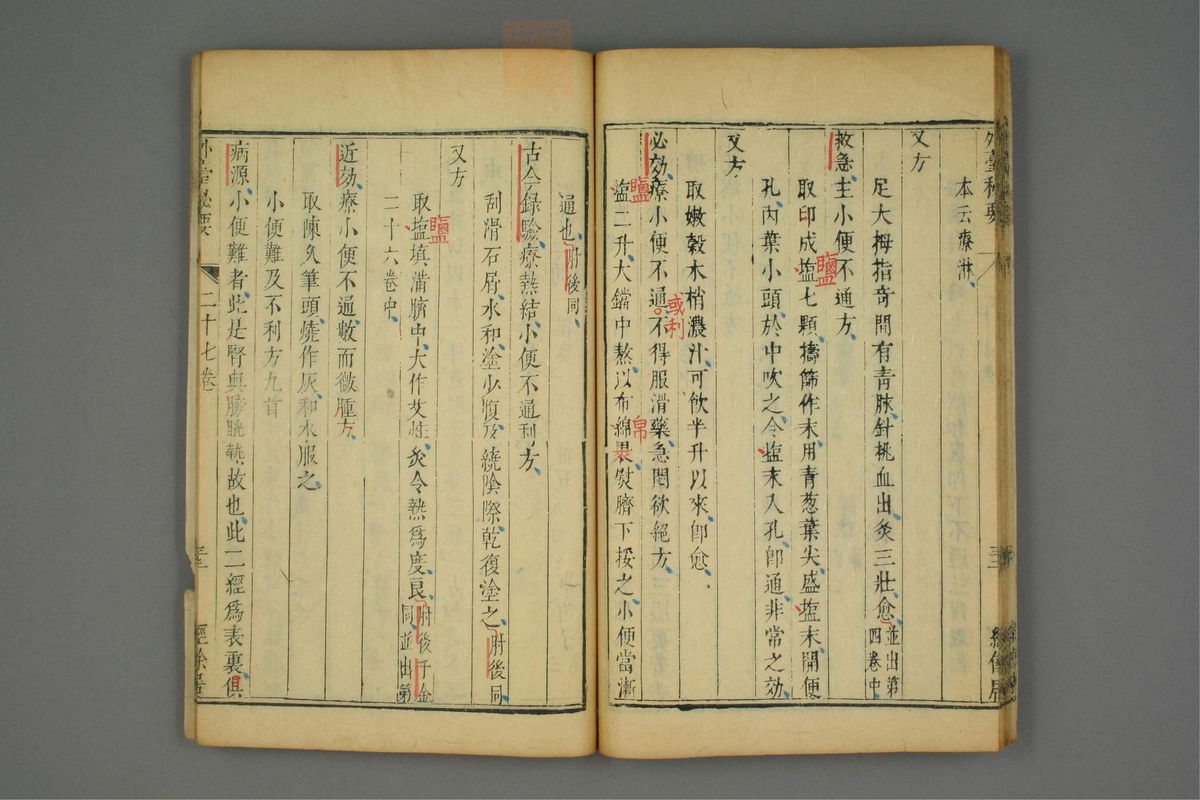 外臺秘要
本云療淋
又方
足大拇指奇間有青脉針挑血出灸三壯愈並出第四卷中
救急主小便不通方
取印成塩七顆擣篩作末用青葱葉尖盛塩末開便
鹽
孔内葉小頭於中吹之令塩末入孔即通非常之効
又方
取嫩穀木梢濃汁可飲半升以來即愈
或利
必効療小便不通不得服滑藥急悶欲絕方
鹽
塩二升大鐺中熬以布綿裹熨臍下挼之小便當漸
帛
通也肘後同
古今録驗療熱結小便不通利方
刮滑石屑水和塗少腹及繞陰際乾復塗之肘後同
又方
取塩填滿臍中大作艾炷灸令熱爲度良肘後千金同並出第
鹽
二十六卷中
近効療小便不通數而微腫方
取陳久筆頭燒作灰和水服之
小便難及不利方九首
病源小便難者此是腎與膀胱熱故也此二經爲表裏俱
外臺秘要 二十七卷 三 經餘居